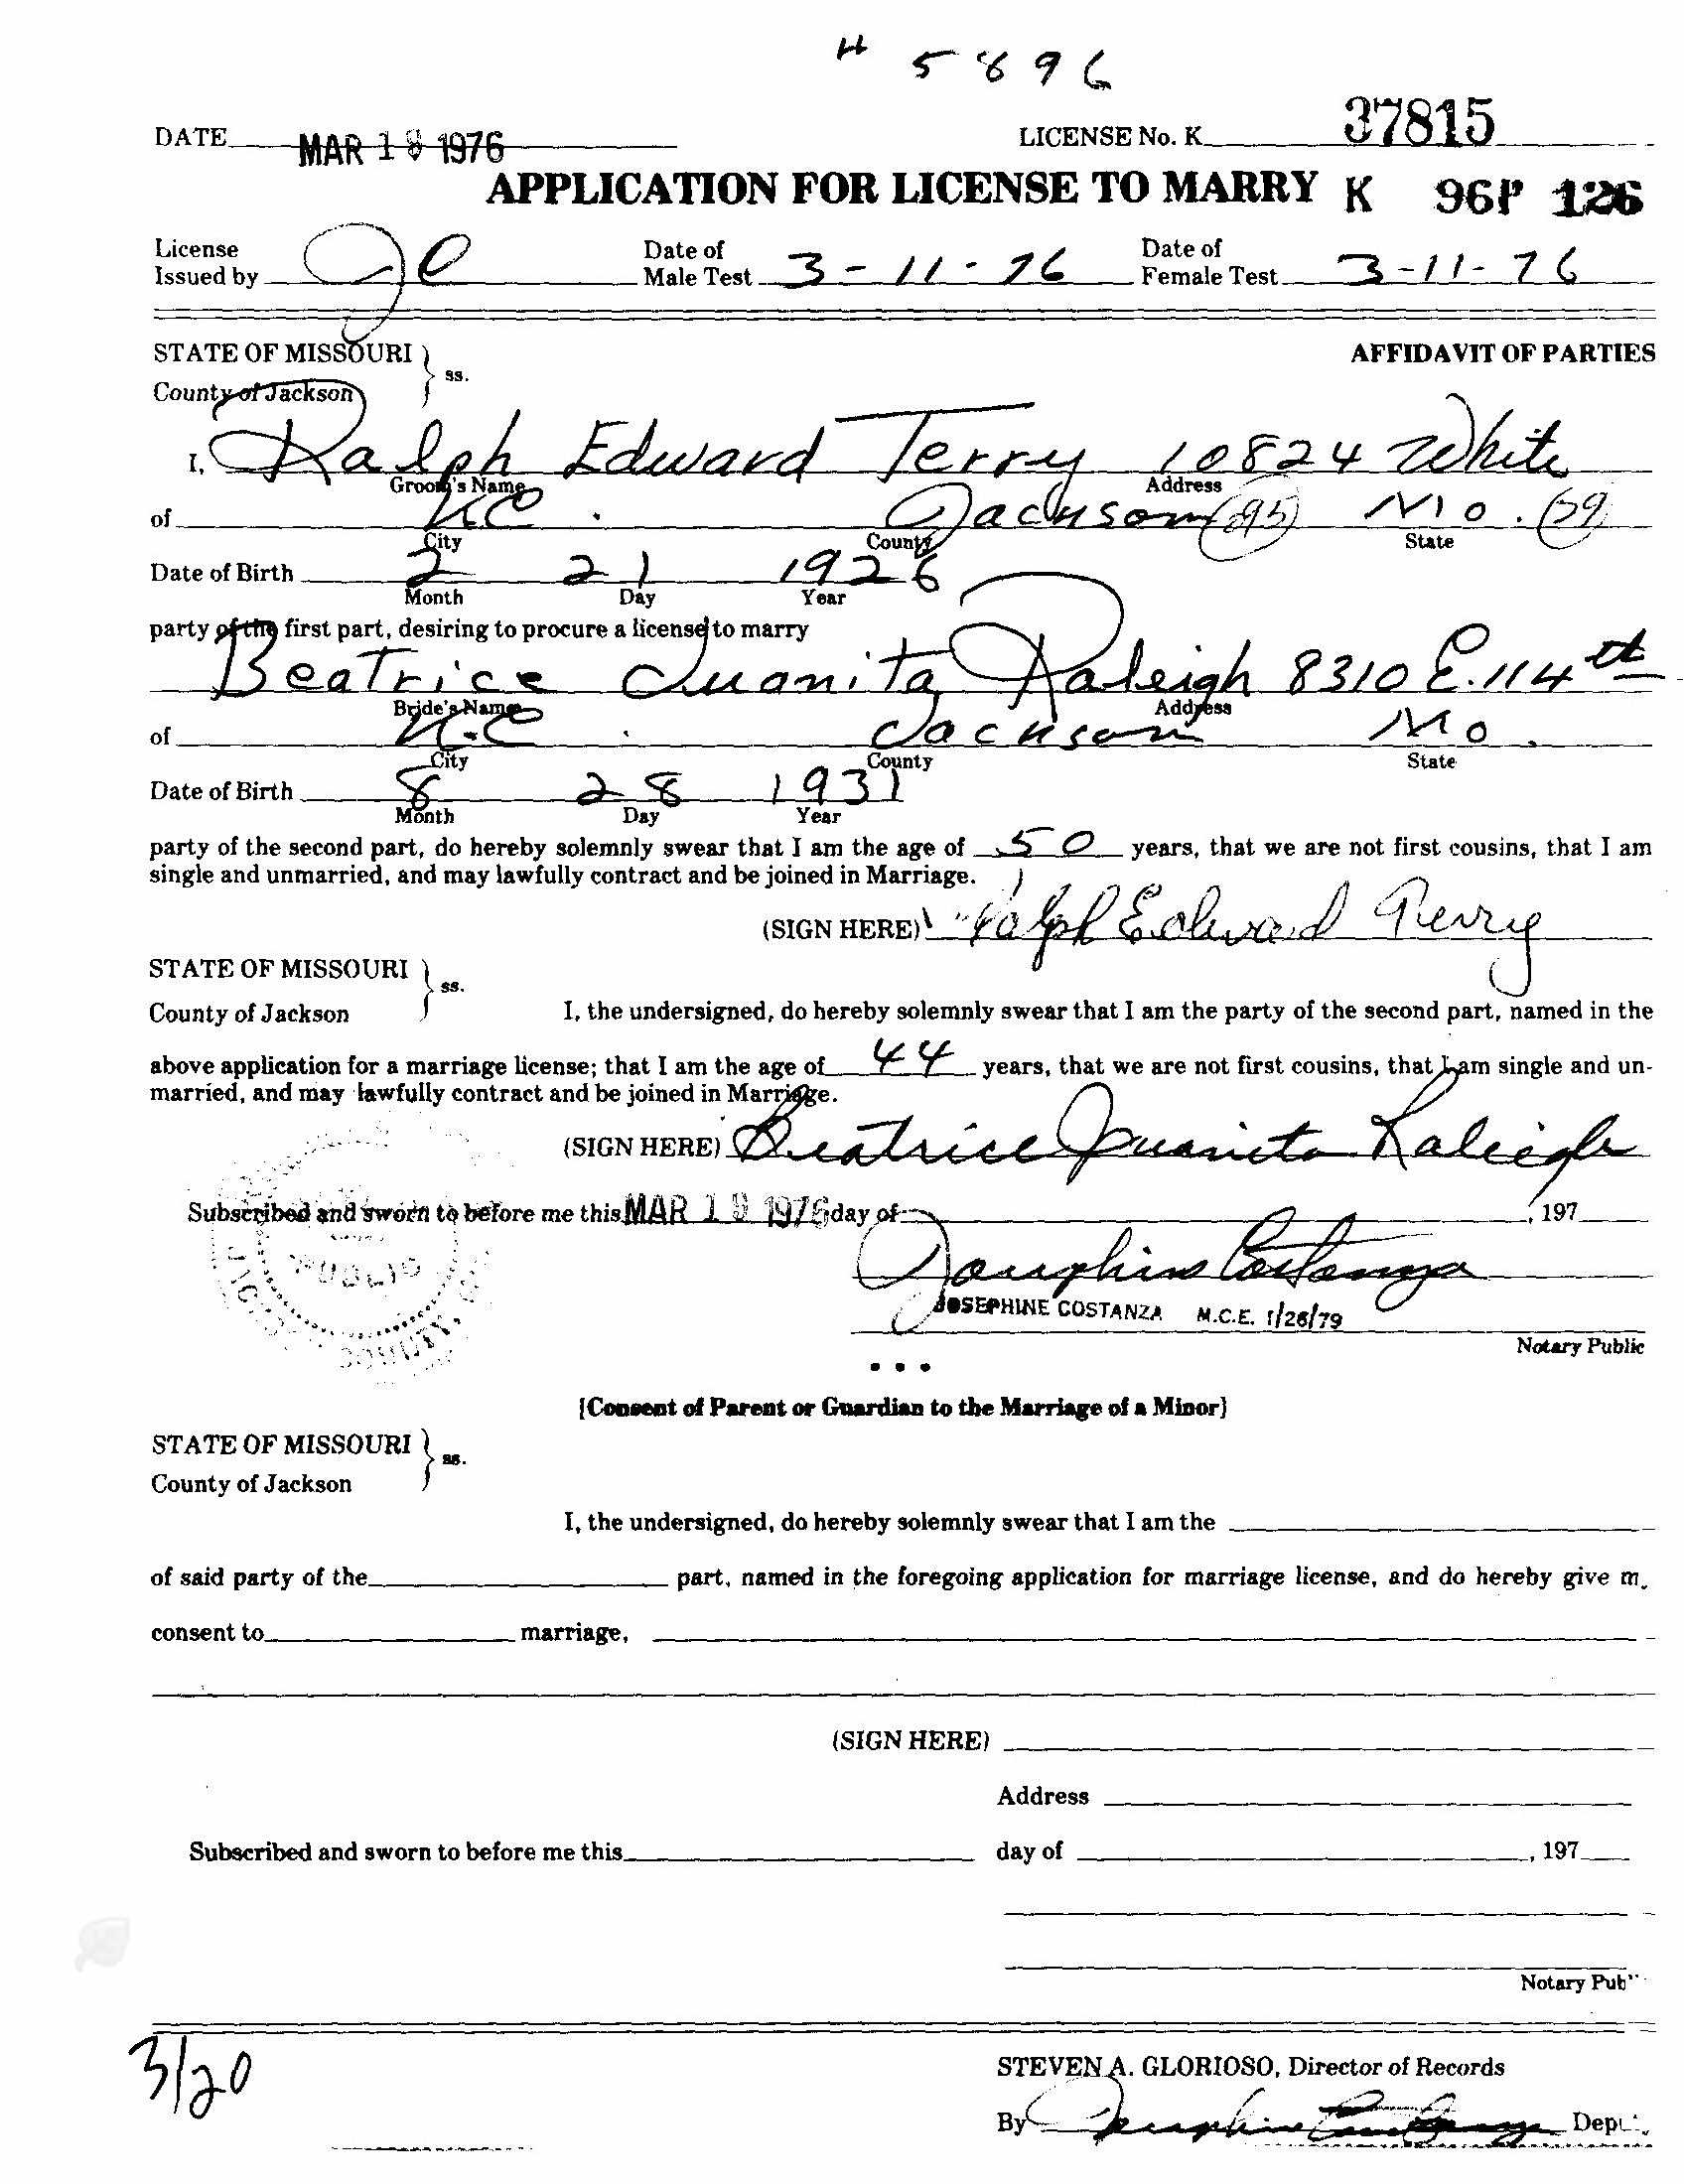 " 5896
DATE MAR 1 1976 LICENSE No. K 37815
APPLICATION FOR LICENSE TO MARRY K 96P 126
License Issued by JC Date of Male Test 3-11-76 Date of Female Test 3-11-76
STATE OF MISSOURI } ss. AFFIDAVIT OF PARTIES
County of Jackson
I, Ralph Edward Terry 10824 White
Groom's Name Address
of KC. Jackson (95) Mo. (29)
City County State
Date of Birth 2 21 1926
Month Day Year
party of the first part, desiring to procure a license to marry
Beatrice Juanita Raleigh 8310 E. 114th
Bride's Name Address
of K.C. Jackson Mo.
City County State
Date of Birth 8 28 1931
Month Day Year
party of the second part, do hereby solemnly swear that I am the age of 50 years, that we are not first cousins, that I am
single and unmarried, and may lawfully contract and be joined in Marriage.
(SIGN HERE) Ralph Edward Terry
STATE OF MISSOURI } ss.
County of Jackson I, the undersigned, do hereby solemnly swear that I am the party of the second part, named in the
above application for a marriage license; that I am the age of 44 years, that we are not first cousins, that I am single and un-
married, and may lawfully contract and be joined in Marriage.
(SIGN HERE) Beatrice Juanita Raleigh
Subscribed and sworn to before me this MAR 1 1976 day of , 197
PUBLIC
COUNTY,
Josephine Costanza
JOSEPHINE COSTANZA M.C.E. 1/26/79
Notary Public
• • •
{Consent of Parent or Guardian to the Marriage of a Minor}
STATE OF MISSOURI } ss.
County of Jackson
I, the undersigned, do hereby solemnly swear that I am the
of said party of the part, named in the foregoing application for marriage license, and do hereby give m
consent to marriage,
(SIGN HERE)
Address
Subscribed and sworn to before me this day of , 197
Notary Pub
3/20
STEVEN A. GLORIOSO, Director of Records
By Josephine Costanza Dept.